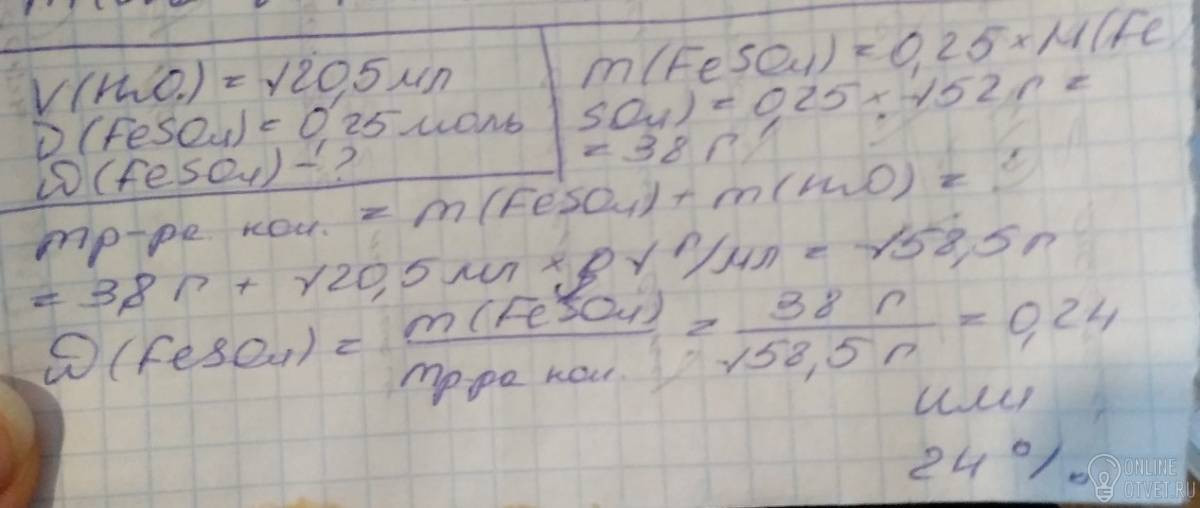 V(H₂O) = 120,5 мл
ν(FeSO₄) = 0,25 моль
ω(FeSO₄) - ?
m(FeSO₄) = 0,25 × M(Fe
SO₄) = 0,25 × 152 г =
= 38 г
mр-ра кон. = m(FeSO₄) + m(H₂O) =
= 38 г + 120,5 мл × 1 г/мл = 158,5 г
ω(FeSO₄) = m(FeSO₄) / mр-ра кон. = 38 г / 158,5 г = 0,24
или
24 %.
ONLINE
OTVET.RU